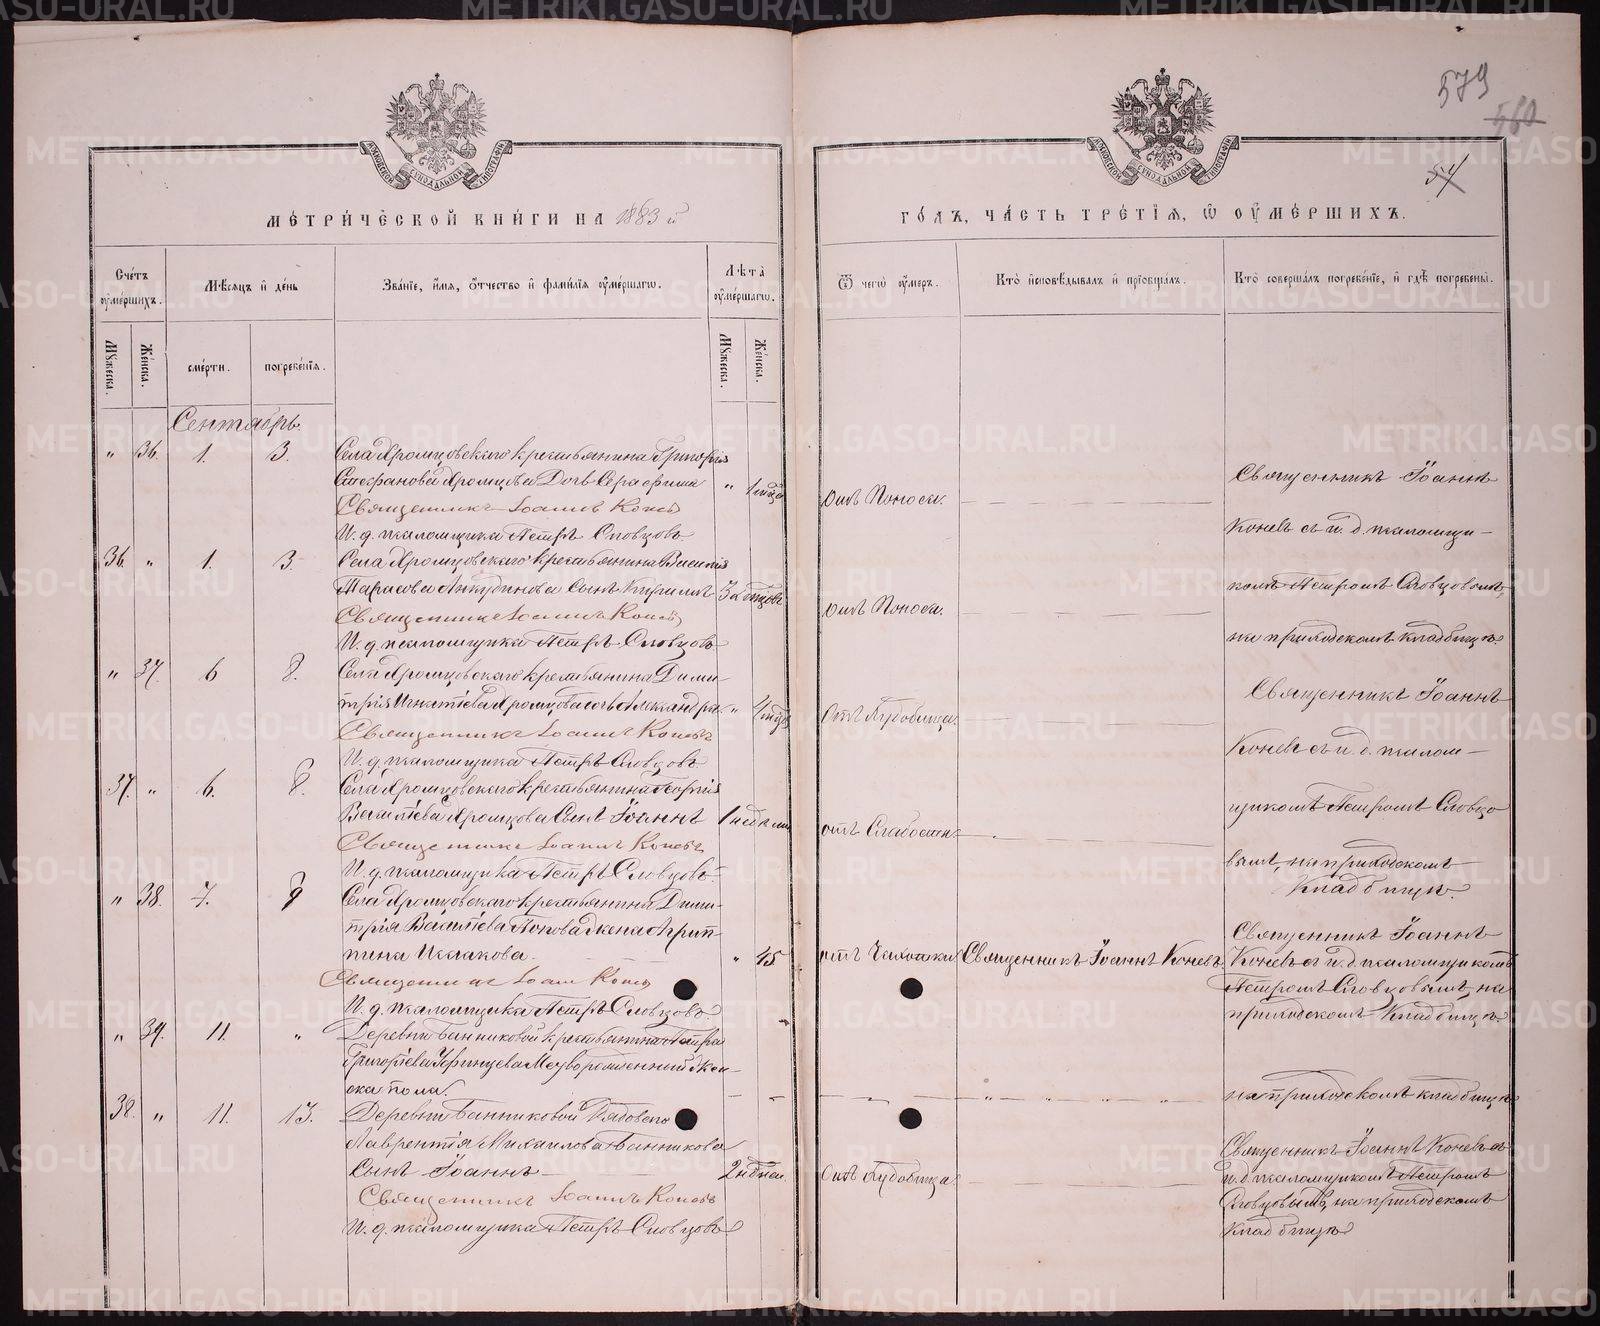 579
560
54
МЕТРИЧЕСКОЙ КНИГИ НА 1883 й
ГОДЪ, ЧАСТЬ ТРЕТІЯ, Ѿ ОУМЕРШИХЪ.
Счетъ оумершихъ.
Мѣсяцъ и день
Званіе, имя, отчество и фамилія оумершагѡ.
Лѣта оумершагѡ.
Ѿ чегѡ оумеръ.
Кто исповѣдывалъ и пріобщалъ.
Кто совершалъ погребеніе, и гдѣ погребены.
Мужеска.
Женска.
смерти.
погребенія.
Мужеска.
Женска.
Сентябрь.
" 36. 1. 3. Села Хромцовскаго крестьянина Григорія
Стефанова Хромцова Дочь Серафима " 1 мѣс.
Священникъ Іоаннъ Коневъ
И. д. псаломщика Петръ Словцовъ
отъ Поноса.
Священникъ Іоаннъ
Коневъ съ и. д. псаломщи-
комъ Петромъ Словцовымъ,
на приходскомъ кладбищѣ.
36. " 1. 3. Села Хромцовскаго крестьянина Василія
Тарасова Анкудинова Сынъ Кириллъ
Священникъ Іоаннъ Коневъ
И. д. псаломщика Петръ Словцовъ
отъ Поноса.
" 37. 6 8. Села Хромцовскаго крестьянина Дими-
трія Игнатіева Хромцова дочь Александра "
Священникъ Іоаннъ Коневъ
И. д. псаломщика Петръ Словцовъ.
отъ Худобища.
Священникъ Іоаннъ
Коневъ съ и. д. псалом-
щикомъ Петромъ Словцо
вымъ, на приходскомъ
Кладбищѣ.
37. " 6. 8. Села Хромцовскаго крестьянина Георгія
Васильева Хромцова Сынъ Іоаннъ 1 недели
Священникъ Іоаннъ Коневъ
И. д. псаломщика Петръ Словцовъ.
отъ Слабости.
" 38. 7. 9 Села Хромцовскаго крестьянина Дими-
трія Васильева Попова жена Агрип-
пина Исакова. " 45
Священникъ Іоаннъ Коневъ
И. д. псаломщика Петръ Словцовъ.
отъ Чахотки
Священникъ Іоаннъ Коневъ.
Священникъ Іоаннъ
Коневъ съ и. д. псаломщикомъ
Петромъ Словцовымъ, на
приходскомъ Кладбищѣ.
" 39. 11. " Деревни Банниковой крестьянина Петра
Григорьева Уфинцева Мертворожденный Жен-
ска пола.
на приходскомъ кладбищѣ
38. " 11. 13. Деревни Банниковой Рядоваго
Лаврентія Михаилова Банникова
Сынъ Іоаннъ 2 недѣли.
Священникъ Іоаннъ Коневъ
И. д. псаломщика Петръ Словцовъ
отъ Худобища
Священникъ Іоаннъ Коневъ съ
и. д. псаломщикомъ Петромъ
Словцовымъ, на приходскомъ
Кладбищѣ